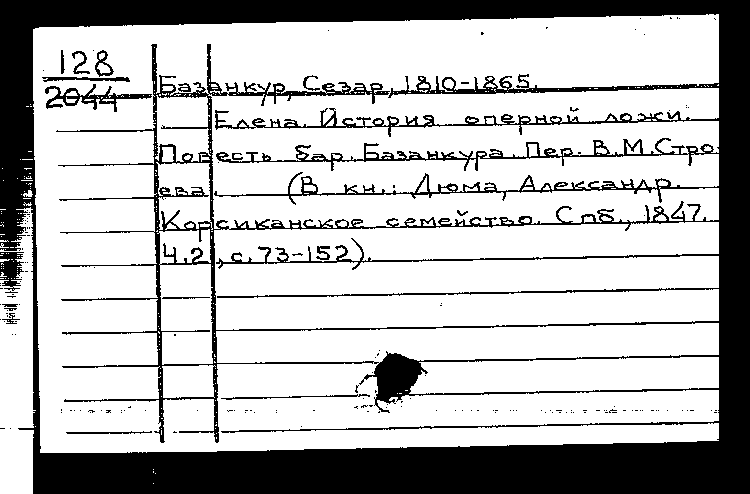 128
2044
Базанкур, Сезар, 1810-1865.
Елена. История оперной ложи.
Повесть бар. Базанкура. Пер. В.М.Стро
ева. (В кн.: Дюма, Александр.
Корсиканское семейство. Спб., 1847.
Ч.2, с.73-152).